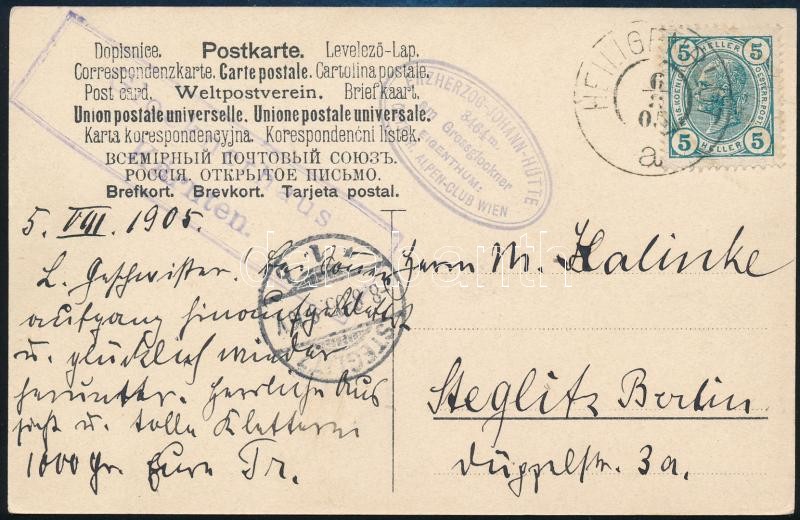 Dopisnice. Postkarte. Levelező-Lap.
Correspondenzkarte. Carte postale. Cartolina postale.
Post card. Weltpostverein. Briefkaart.
Union postale universelle. Unione postale universale.
Karta korespondencyjna. Korespondenční listek.
ВСЕМІРНЫЙ ПОЧТОВЫЙ СОЮЗЪ.
РОССІЯ. ОТКРЫТОЕ ПИСЬМО.
Brefkort. Brevkort. Tarjeta postal.
ERZHERZOG-JOHANN-HÜTTE
3464 m.
am Grossglockner
EIGENTHUM:
ALPEN-CLUB WIEN
HEILIGEN
6
8
05
a
5 HELLER 5
5 HELLER 5
Kärnten.
STEGLITZ
5. VIII. 1905.
L. Geschwister. Bei Sonnen
aufgang hinaufgeklettert
u. glücklich wieder
herunter. Herrliche Aus
sicht u. tolle Kletterei
1000 Gr. Eure Tr.
Herrn M. Kalinke
Steglitz Berlin
Düppelstr. 3a.
darabanth